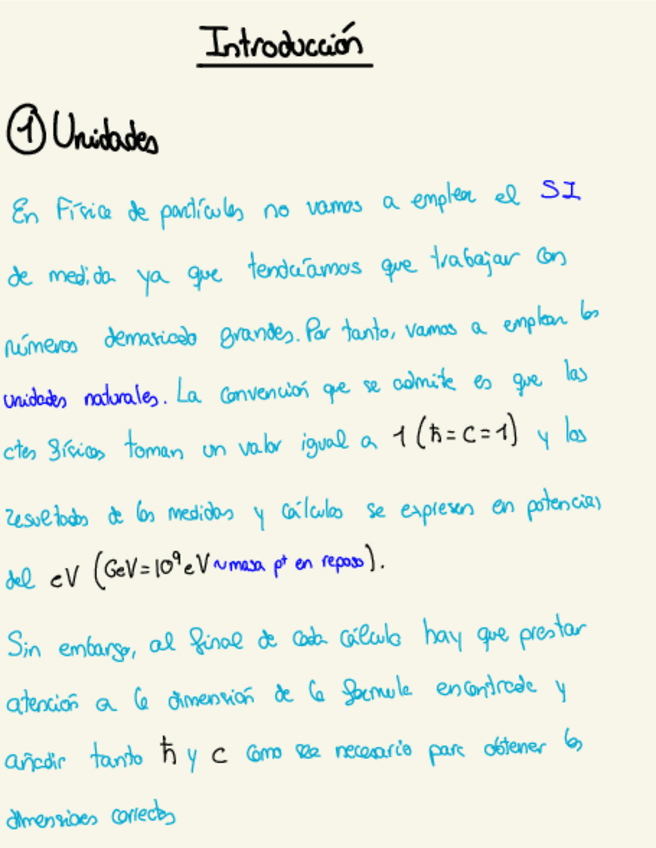 Introducción
① Unidades
En Física de partículas no vamos a emplear el SI
de medida ya que tendríamos que trabajar con
números demasiado grandes. Por tanto, vamos a emplear las
unidades naturales. La convención que se admite es que las
ctes físicas toman un valor igual a 1 (ħ=c=1) y los
resultados de las medidas y cálculos se expresan en potencias
del eV (GeV=10⁹eV ~masa p⁺ en reposo).
Sin embargo, al final de cada cálculo hay que prestar
atención a la dimensión de la fórmula encontrada y
añadir tanto ħ y c como sea necesario para obtener las
dimensiones correctas